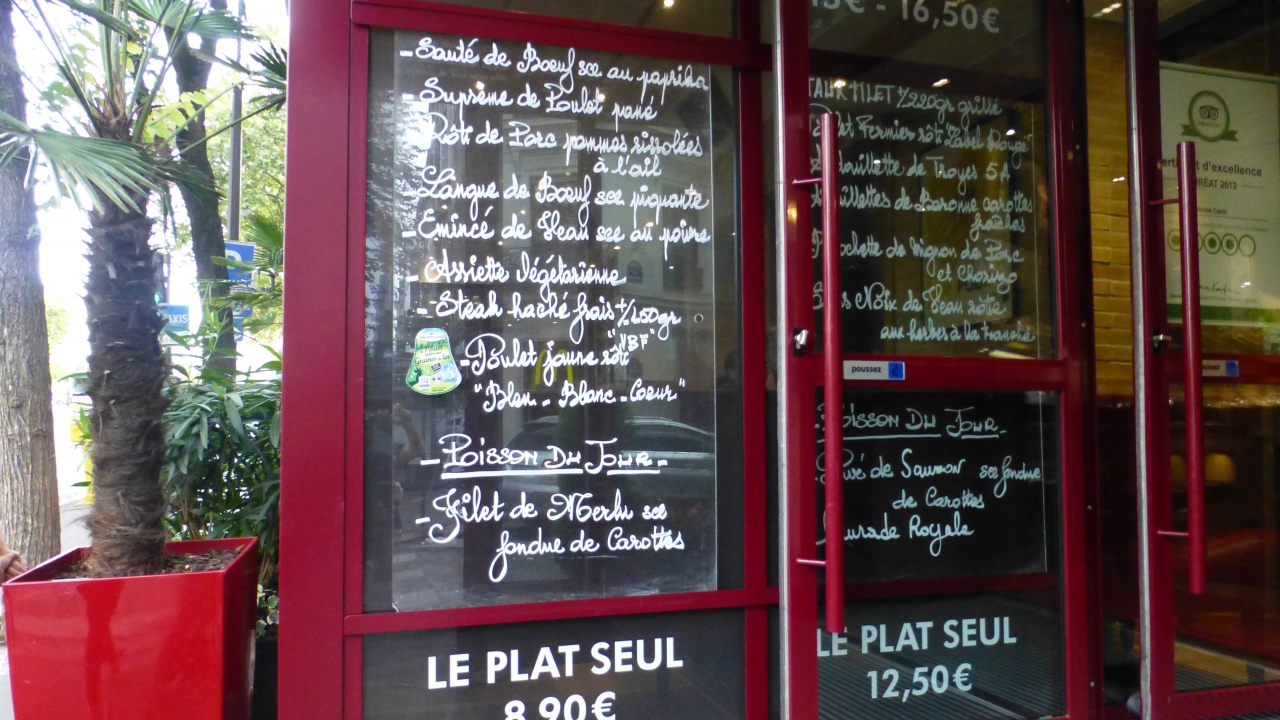 -Sauté de Bœuf sce au paprika
-Suprême de Poulet pané
-Rôti de Porc pommes rissolées
à l'ail
-Langue de Bœuf sce piquante
-Emincé de Veau sce au poivre
-Assiette Végétarienne
-Steak haché frais +/-150gr
"VBF"
-Poulet jaune rôti
"Bleu-Blanc-Coeur"
-POISSON DU JOUR-
-Filet de Merlu sce
fondue de Carottes
LE PLAT SEUL
8,90€
15€ - 16,50€
FILET +/-220gr grillé
Fermier rôti Label Rouge
de Troyes 5A
de Baronne carottes
fraîches
de mignon de Porc
et Chorizo
Noix de Veau rôtie
aux herbes à la Franche
poussez
POISSON DU JOUR-
de Saumon sce fondue
de Carottes
Royale
LE PLAT SEUL
12,50€
d'excellence
2013
TAXIS
P